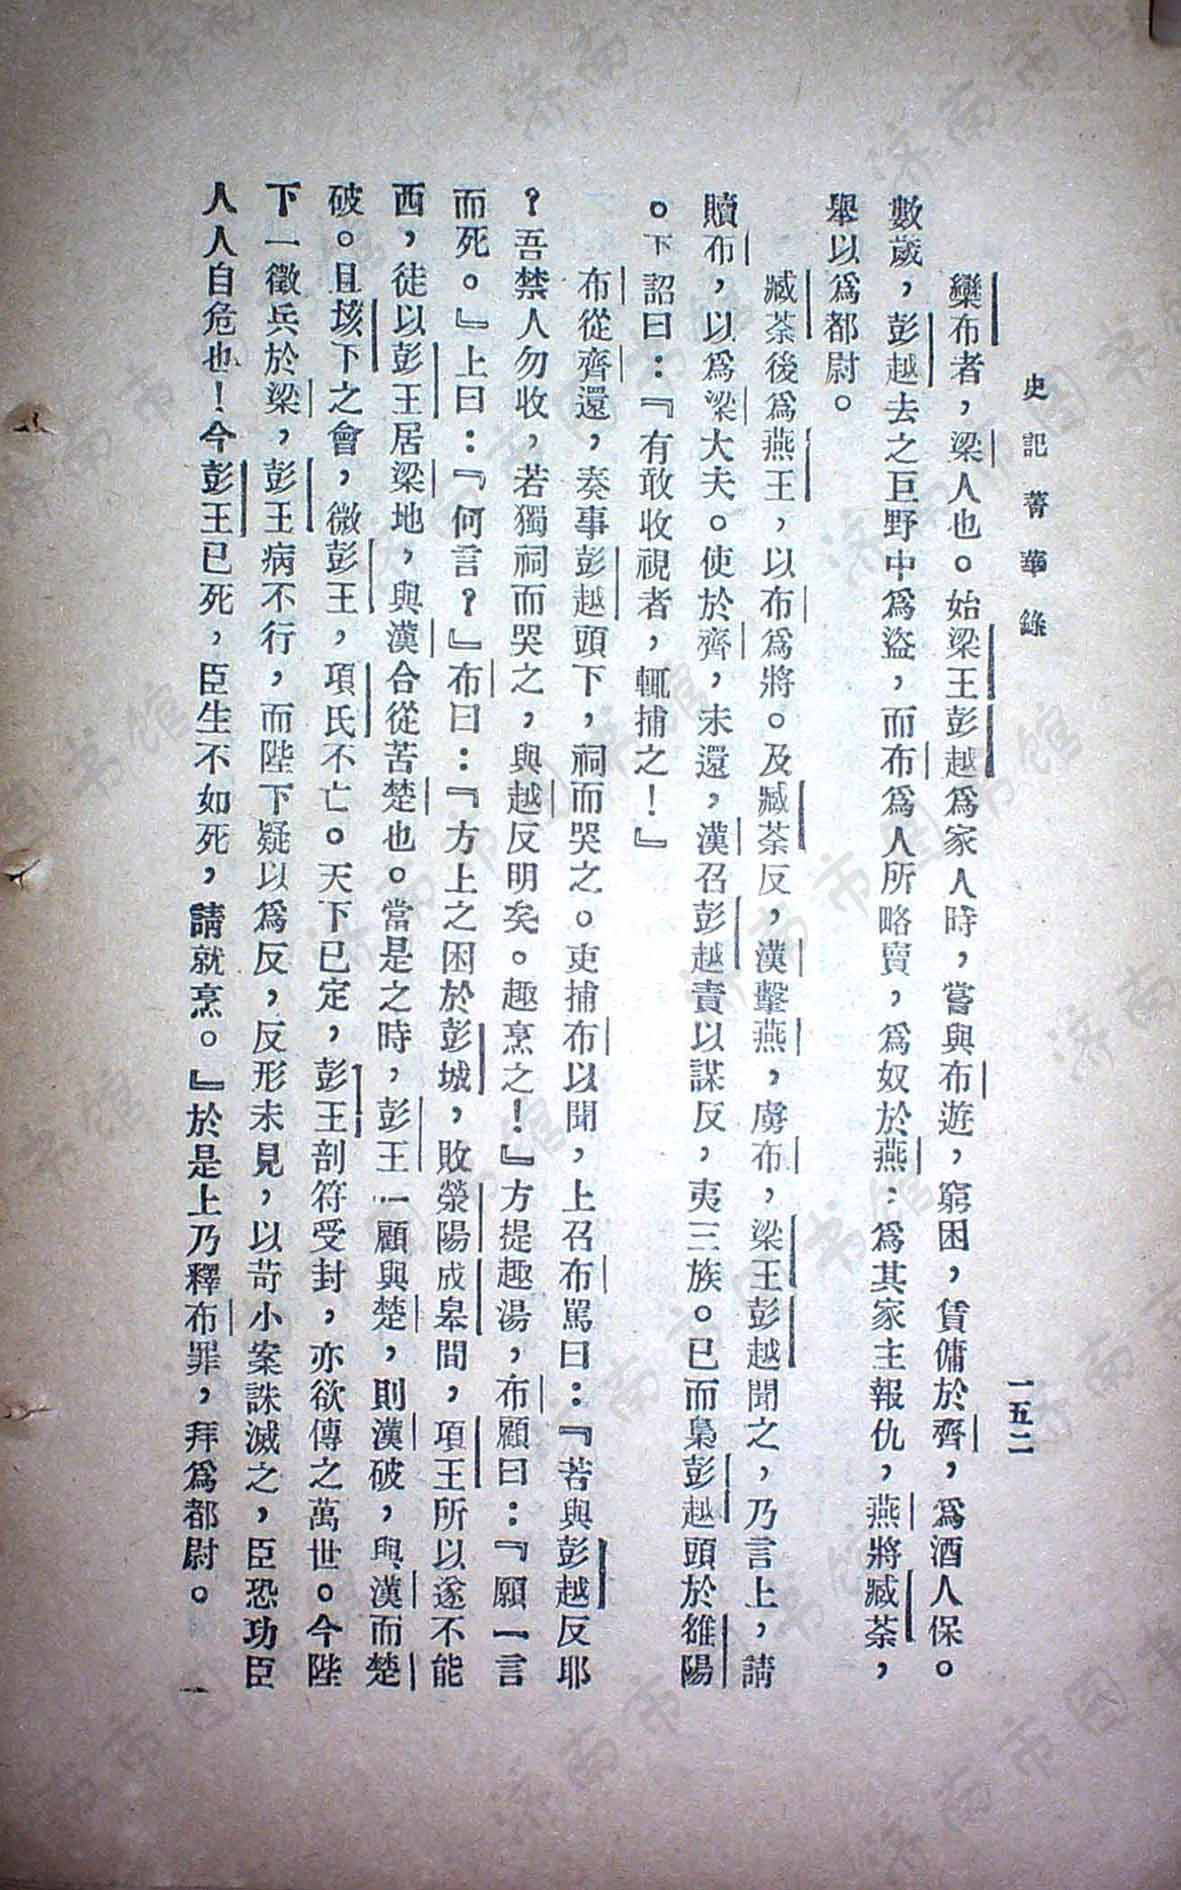 史記菁華錄
一五二
欒布者，梁人也。始梁王彭越爲家人時，嘗與布遊，窮困，賃傭於齊，爲酒人保。
數歲，彭越去之巨野中爲盜，而布爲人所略賣，爲奴於燕；爲其家主報仇，燕將臧荼，
舉以爲都尉。
臧荼後爲燕王，以布爲將。及臧荼反，漢擊燕，虜布，梁王彭越聞之，乃言上，請
贖布，以爲梁大夫。使於齊，未還，漢召彭越責以謀反，夷三族。已而梟彭越頭於雒陽
。下詔曰：『有敢收視者，輒捕之！』
布從齊還，奏事彭越頭下，祠而哭之。吏捕布以聞，上召布駡曰：『若與彭越反耶
？吾禁人勿收，若獨祠而哭之，與越反明矣。趣烹之！』方提趣湯，布顧曰：『願一言
而死。』上曰：『何言？』布曰：『方上之困於彭城，敗滎陽成皋間，項王所以遂不能
西，徒以彭王居梁地，與漢合從苦楚也。當是之時，彭王一顧與楚，則漢破，與漢而楚
破。且垓下之會，微彭王，項氏不亡。天下已定，彭王剖符受封，亦欲傳之萬世。今陛
下一徵兵於梁，彭王病不行，而陛下疑以爲反，反形未見，以苛小案誅滅之，臣恐功臣
人人自危也！今彭王已死，臣生不如死，請就烹。』於是上乃釋布罪，拜爲都尉。
济南市图书馆